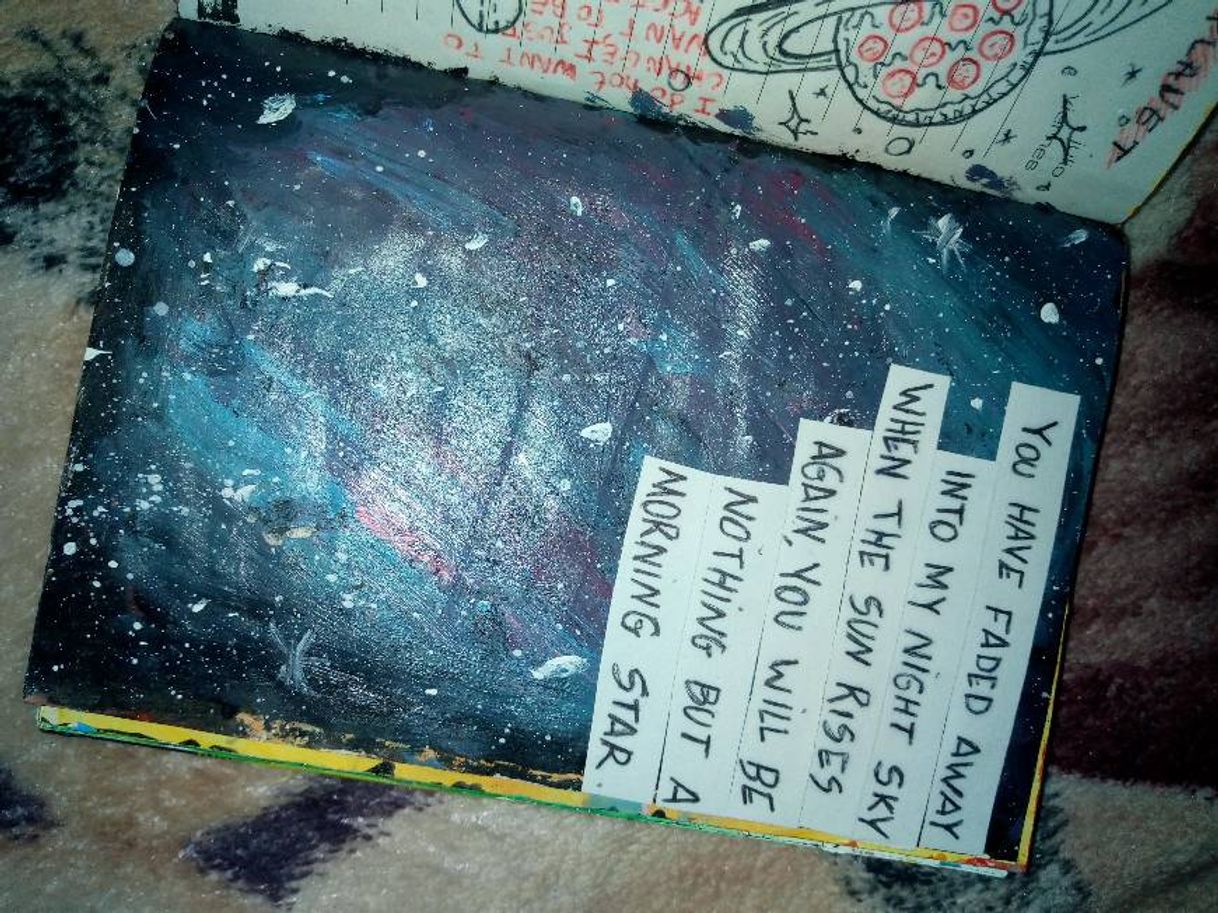 YOU HAVE FADED AWAY
INTO MY NIGHT SKY
WHEN THE SUN RISES
AGAIN, YOU WILL BE
NOTHING BUT A
MORNING STAR.
I do NOT WANT TO
CHANGE I JUST
WANT TO BE